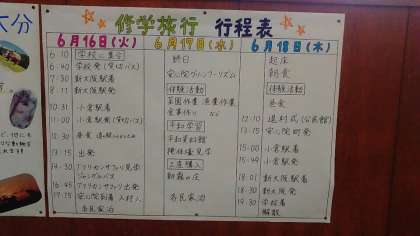 大分
修学旅行 行程表
6月16日(火)
6:10 学校に集合
6:40 学校発(貸切バス)
7:30 新大阪駅着
8:11 新大阪駅発
10:31 小倉駅着
11:00 小倉駅発(貸切バス)
12:30 昼食
13:15 出発
14:30 アフリカンサファリ見学
ジャングルバス
16:45 アフリカンサファリ出発
17:15 安心院到着 入村式
各民家泊
6月17日(水)
終日
安心院グリーンツーリズム
体験活動
菜園作業 農業作業
食事作り など
平和学習
平和資料館
掩体壕見学
土産購入
各民家泊
6月18日(木)
起床
朝食
体験活動
昼食
12:10 退村式(公民館)
安心院町発
15:00 小倉駅着
小倉駅発
18:01 新大阪駅着
18:30 新大阪発
19:30 学校着
解散